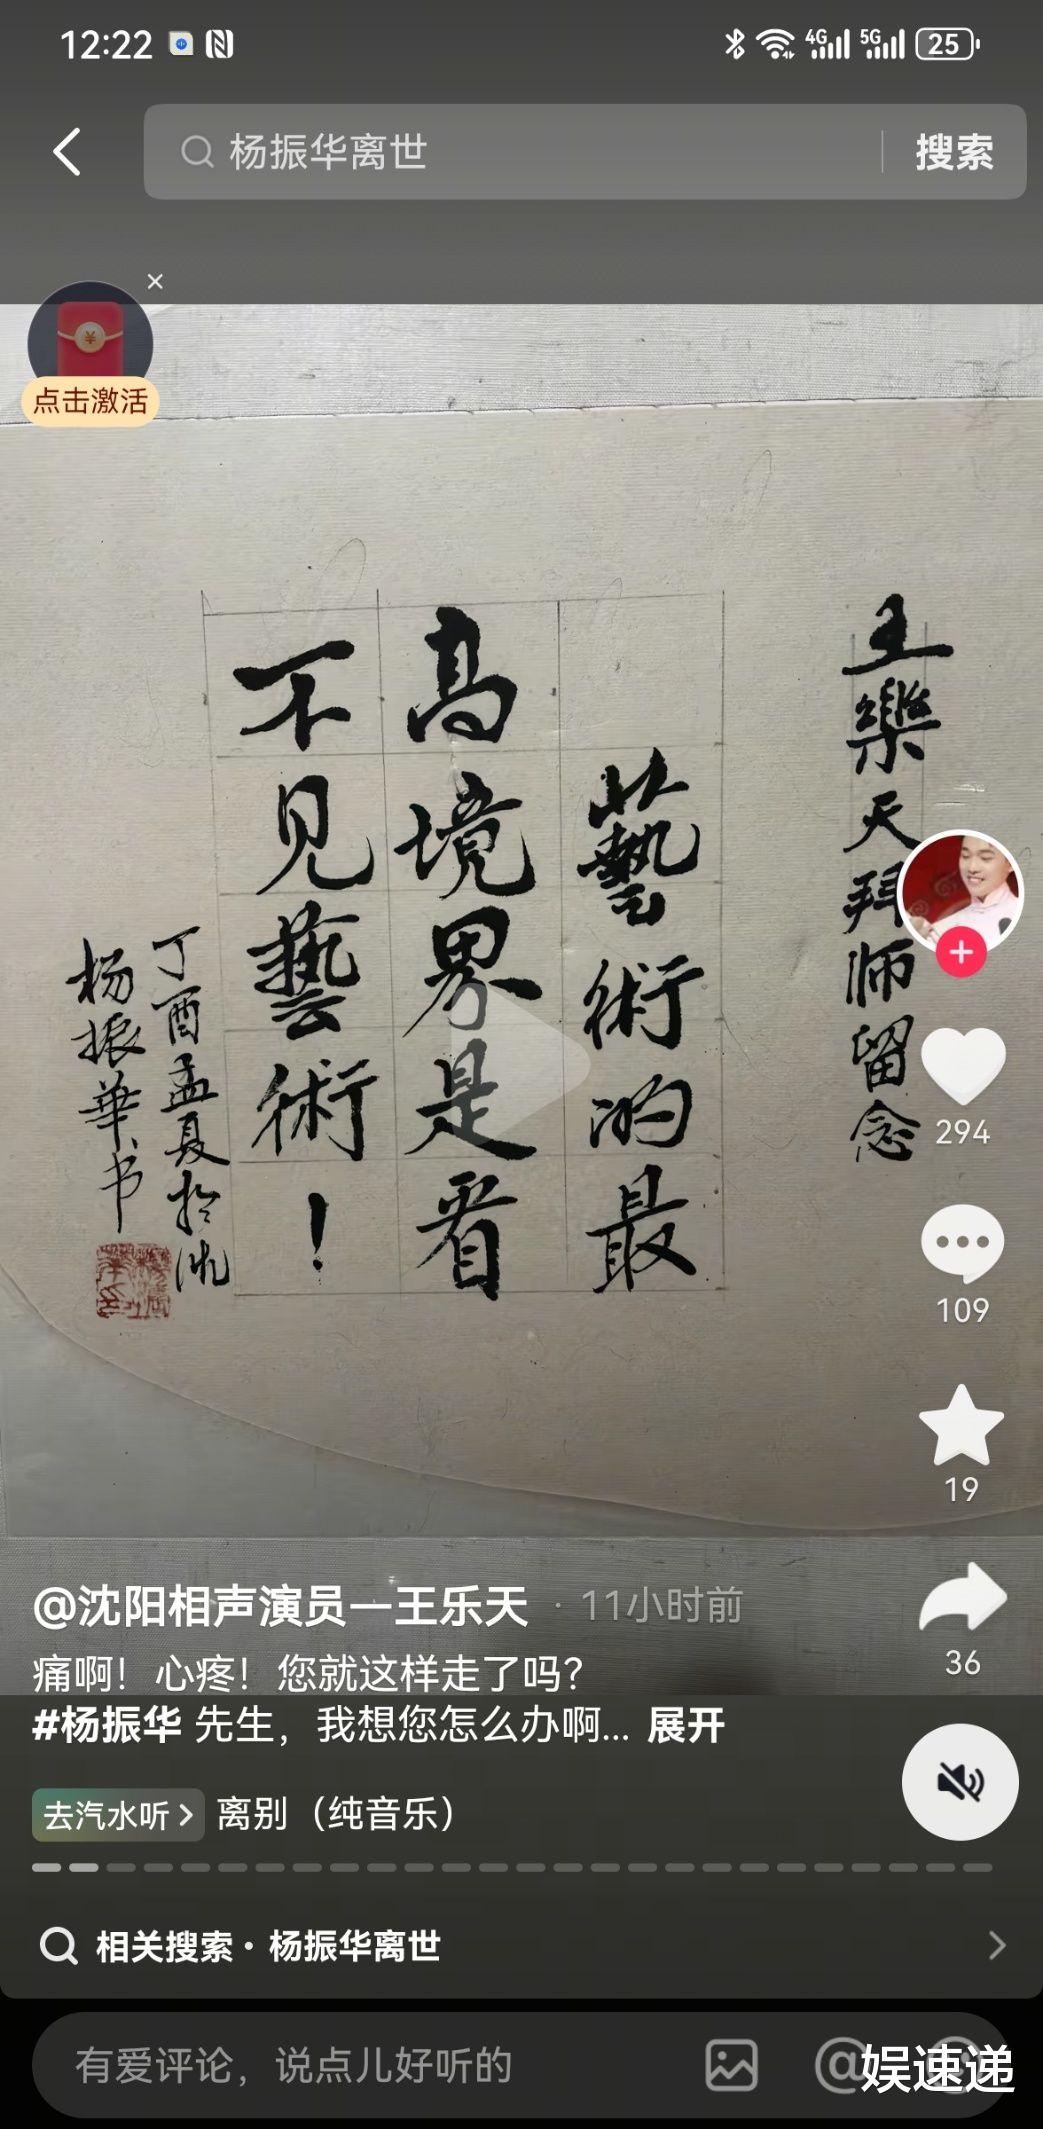 12:22
4G 5G 25
杨振华离世 搜索
点击激活
王樂天拜师留念
藝術的最
高境界是看
不见藝術！
丁酉孟夏於沈
杨振華书
294
109
19
36
@沈阳相声演员一王乐天 · 11小时前
痛啊！心疼！您就这样走了吗？
#杨振华 先生，我想您怎么办啊... 展开
去汽水听 > 离别（纯音乐）
相关搜索 · 杨振华离世
有爱评论，说点儿好听的
娱速递